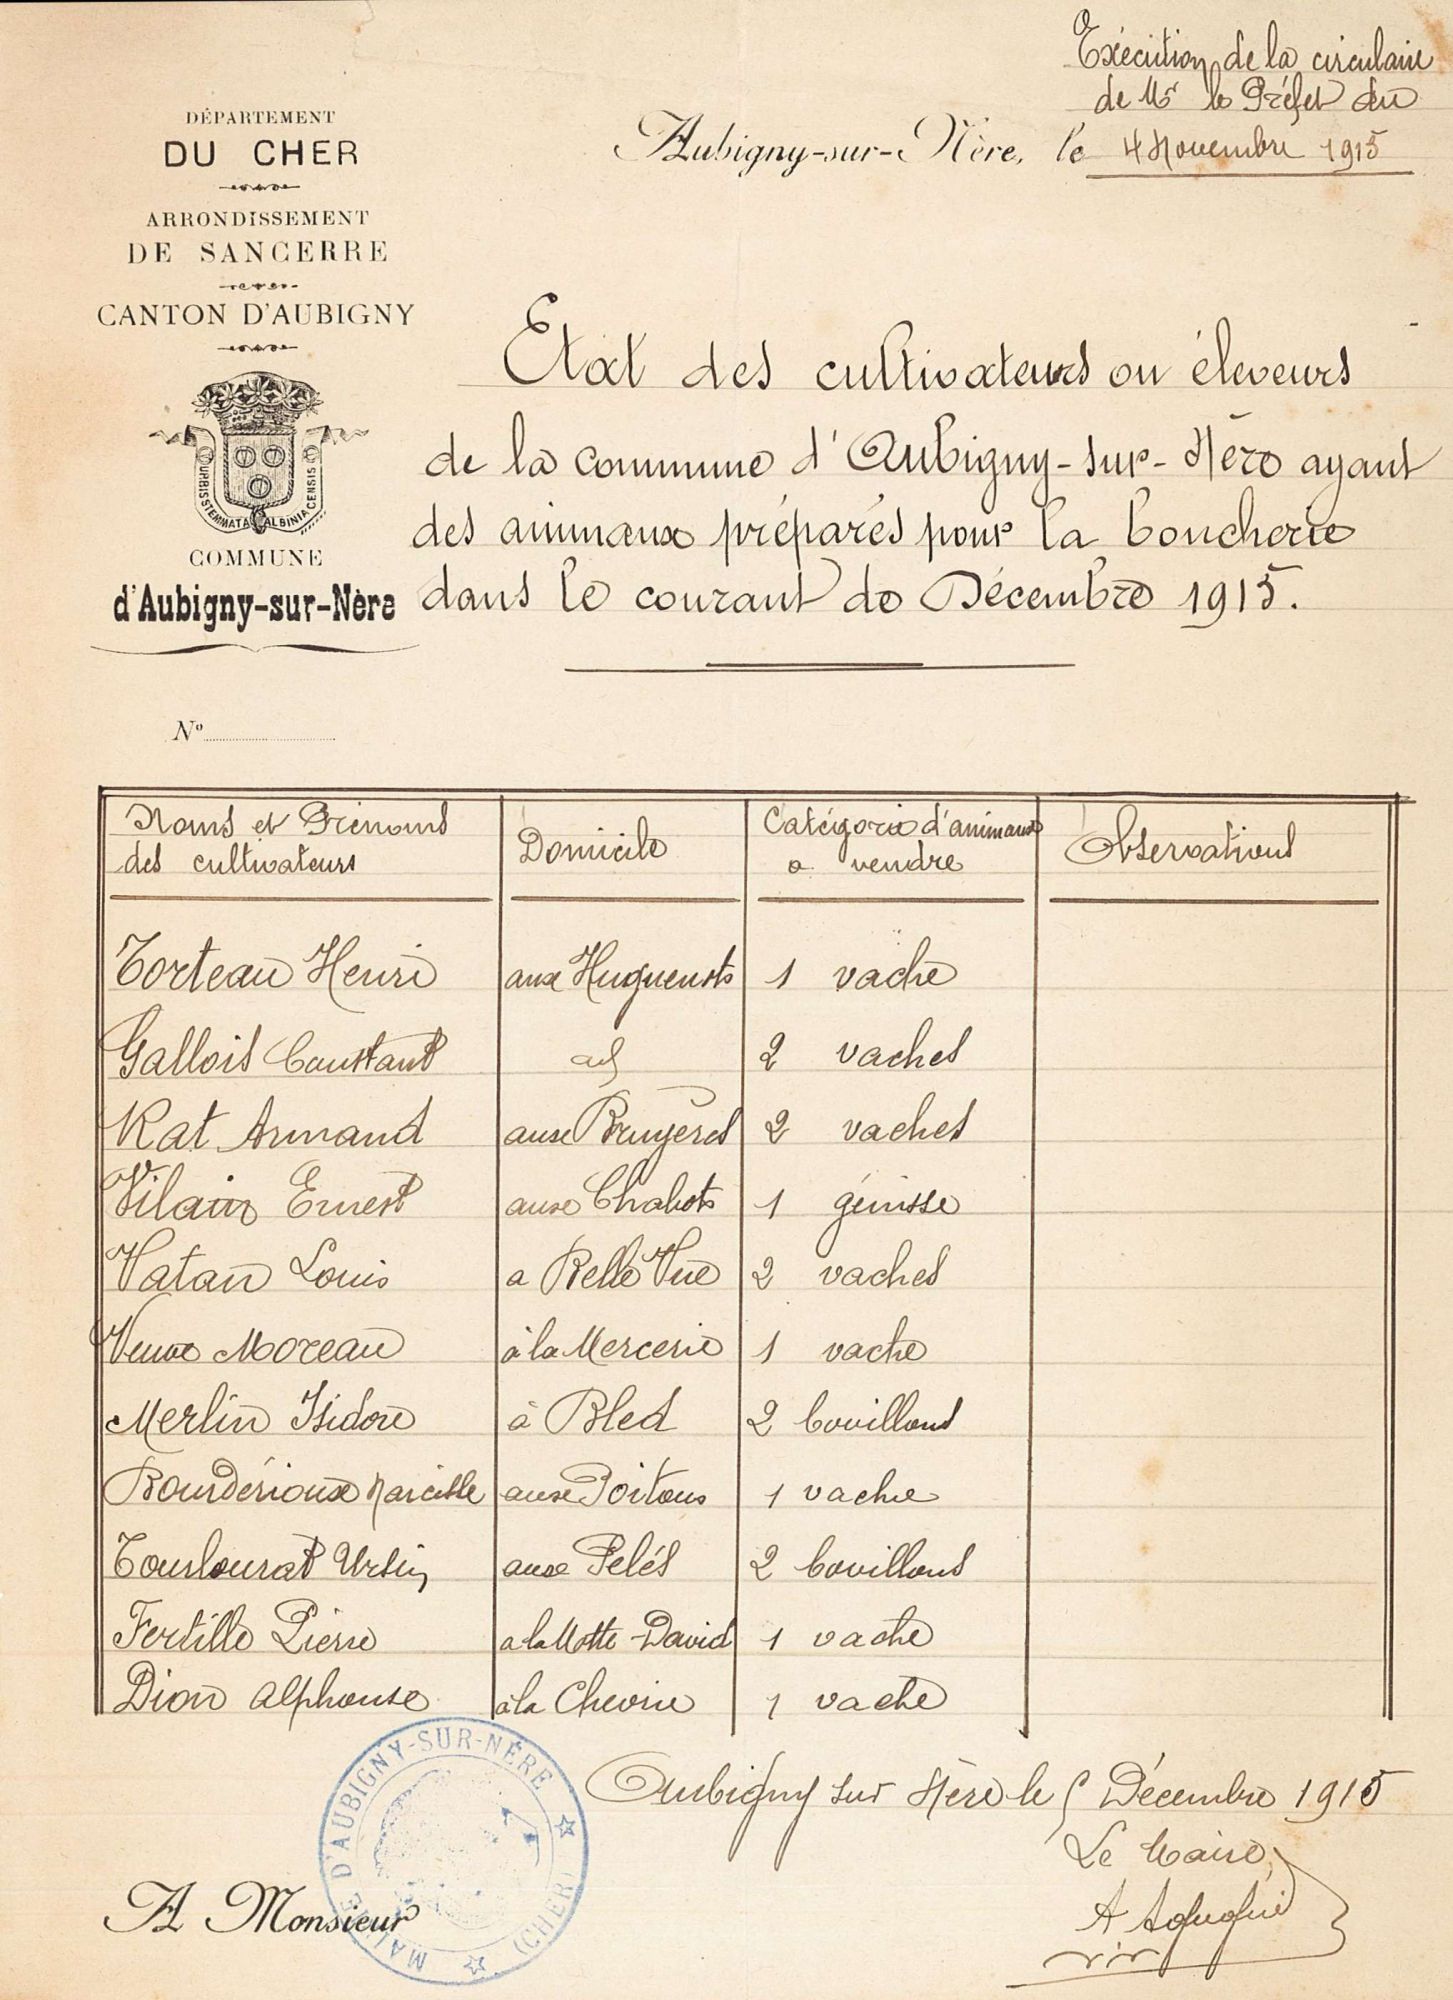 Exécution de la circulaire
de Mr le Préfet du
Aubigny-sur-Nère, le 4 Novembre 1915
DÉPARTEMENT
DU CHER
ARRONDISSEMENT
DE SANCERRE
CANTON D'AUBIGNY
URBIS STEMMATA ALBINIACENSIS
COMMUNE
d'Aubigny-sur-Nère
Etat des cultivateurs ou éleveurs
de la commune d'Aubigny-sur-Nère ayant
des animaux préparés pour la boucherie
dans le courant de Décembre 1915.
No
Noms et Prénoms des cultivateurs | Domicile | Catégorie d'animaux a vendre | Observations
Torteau Henri aux Huguenots 1 vache
Gallois Constant 2 vaches
Rat Armand aux Bruyères 2 vaches
Vilain Ernest aux Chabots 1 génisse
Vatan Louis a Belle Vue 2 vaches
Veuve Moreau à la Mercerie 1 vache
Merlin Isidore à Bled 2 bouvillons
Bourdérioux Narcisse aux Poitous 1 vache
Tourlourat Ursin aux Pelés 2 bouvillons
Fertille Pierre a la Motte-David 1 vache
Dion Alphonse à la Chevrie 1 vache
Aubigny sur Nère le 5 Décembre 1915
Le Maire,
MAIRIE D'AUBIGNY-SUR-NÈRE (CHER)
A Monsieur